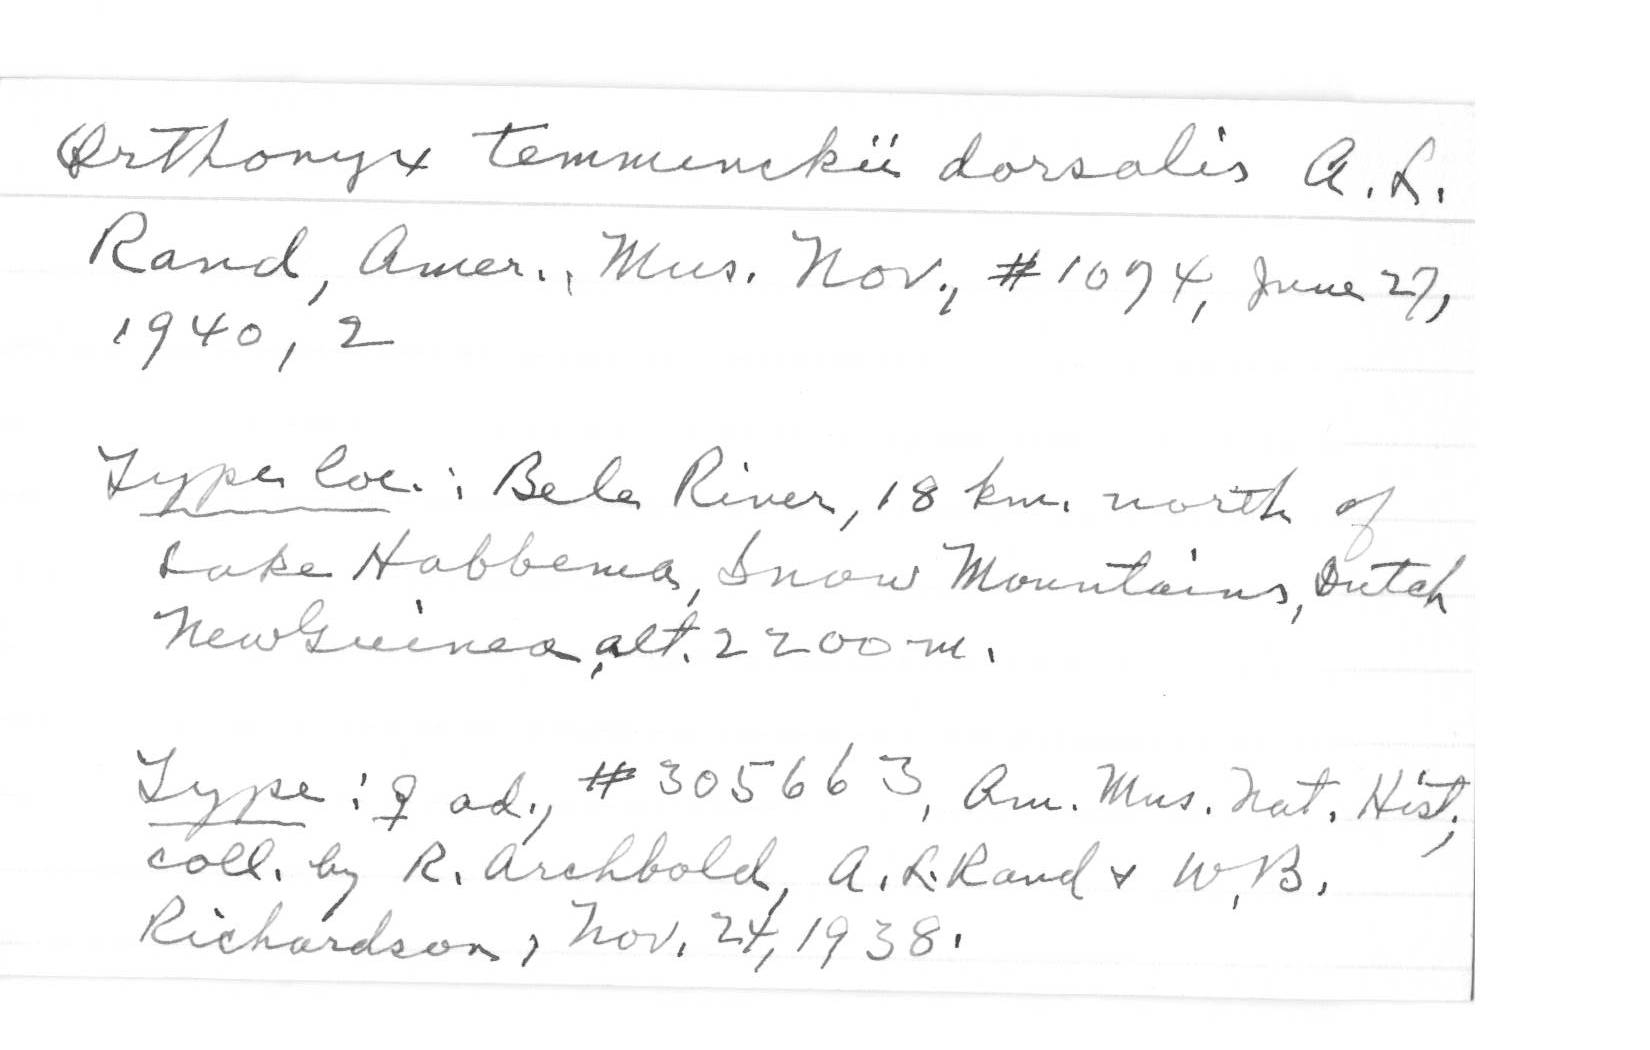 Orthonyx temminckii dorsalis A. L.
Rand, Amer., Mus. Nov., #1074, June 27,
1940, 2
Type loc.: Bele River, 18 km. north of
Lake Habbema, Snow Mountains, Dutch
New Guinea, alt. 2200 m.
Type: ♀ ad., #305663, Am. Mus. Nat. Hist.,
coll. by R. Archbold, A. L. Rand & W. B.
Richardson, Nov. 24, 1938.